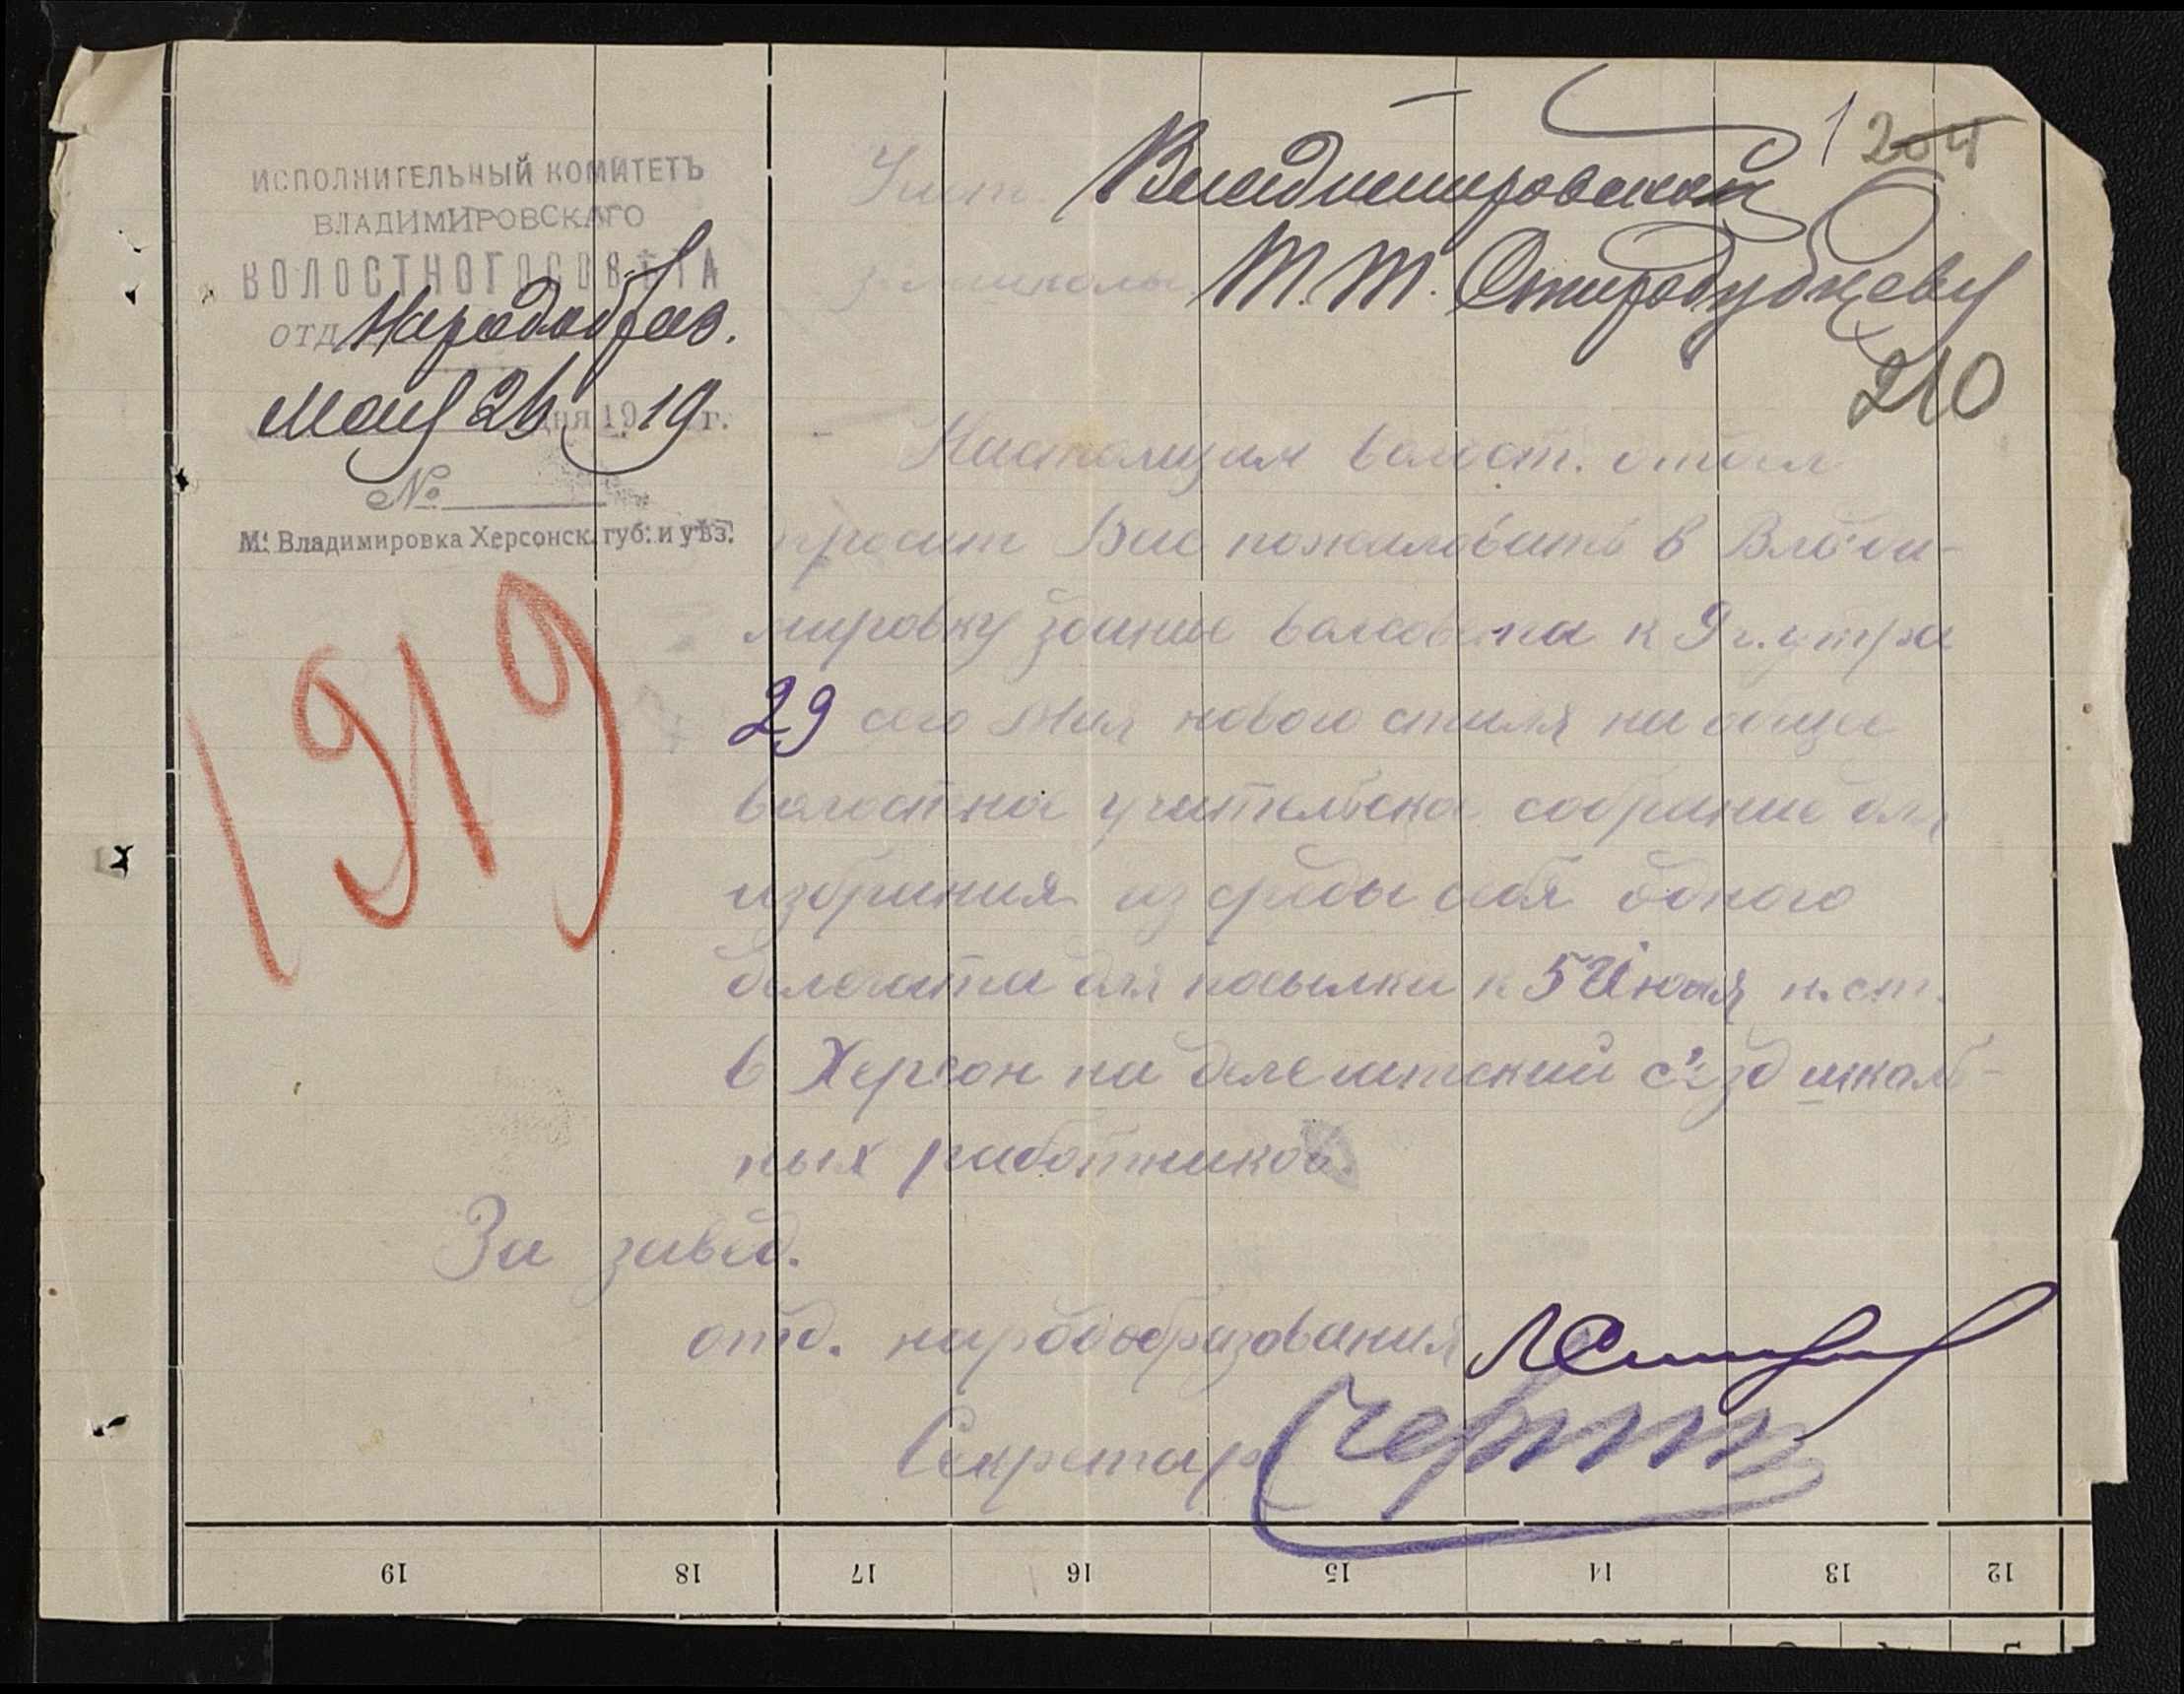 ИСПОЛНИТЕЛЬНЫЙ КОМИТЕТЪ
ВЛАДИМИРОВСКАГО
ВОЛОСТНОГО СОВѢТА
ОТД. Народобраз.
Мая 26 дня 1919 г.
№
М. Владимировка Херсонск. губ. и уѣз.
1919
1 204
Учит. Владимировской
з. школы Т.Т. Стародубцеву
210
Настоящим волост. отдел
просит Вас пожаловать в Влади-
мировку здание волсовета к 9 ч. утра
29 сего Мая нового стиля на общее
волостное учительское собрание для
избрания из среды себя одного
делегата для посылки к 5 Июня н. ст.
в Херсон на делегатский с'езд школь-
ных работников.
За завед.
отд. народобразования
Секретарь
19 18 17 16 15 14 13 12